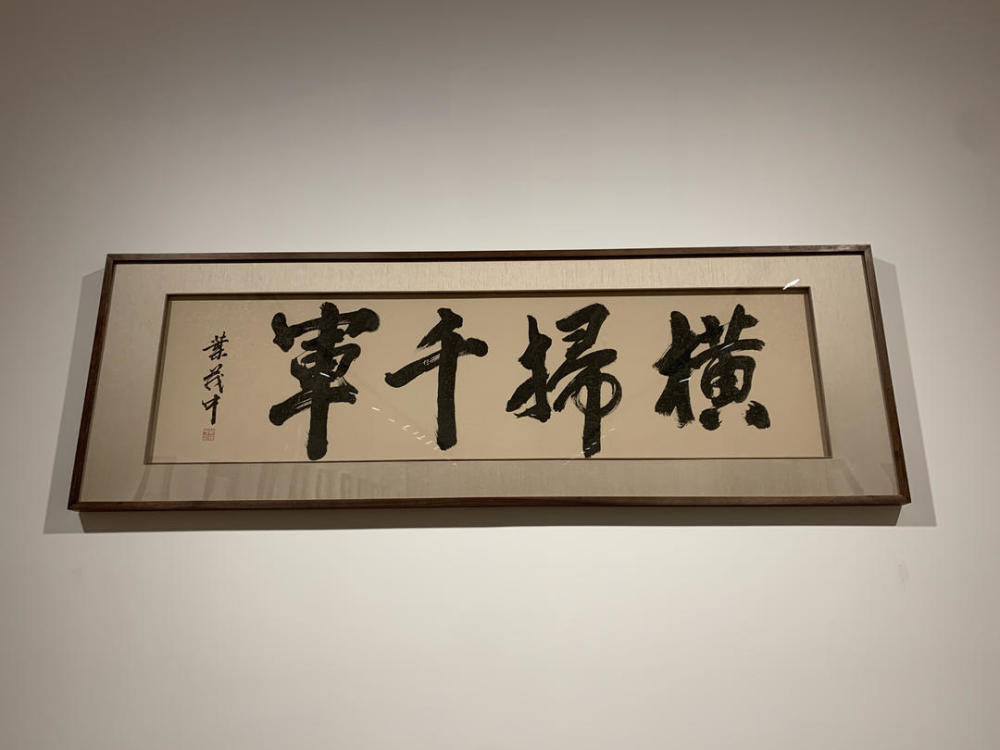 橫掃千軍
葉茂中